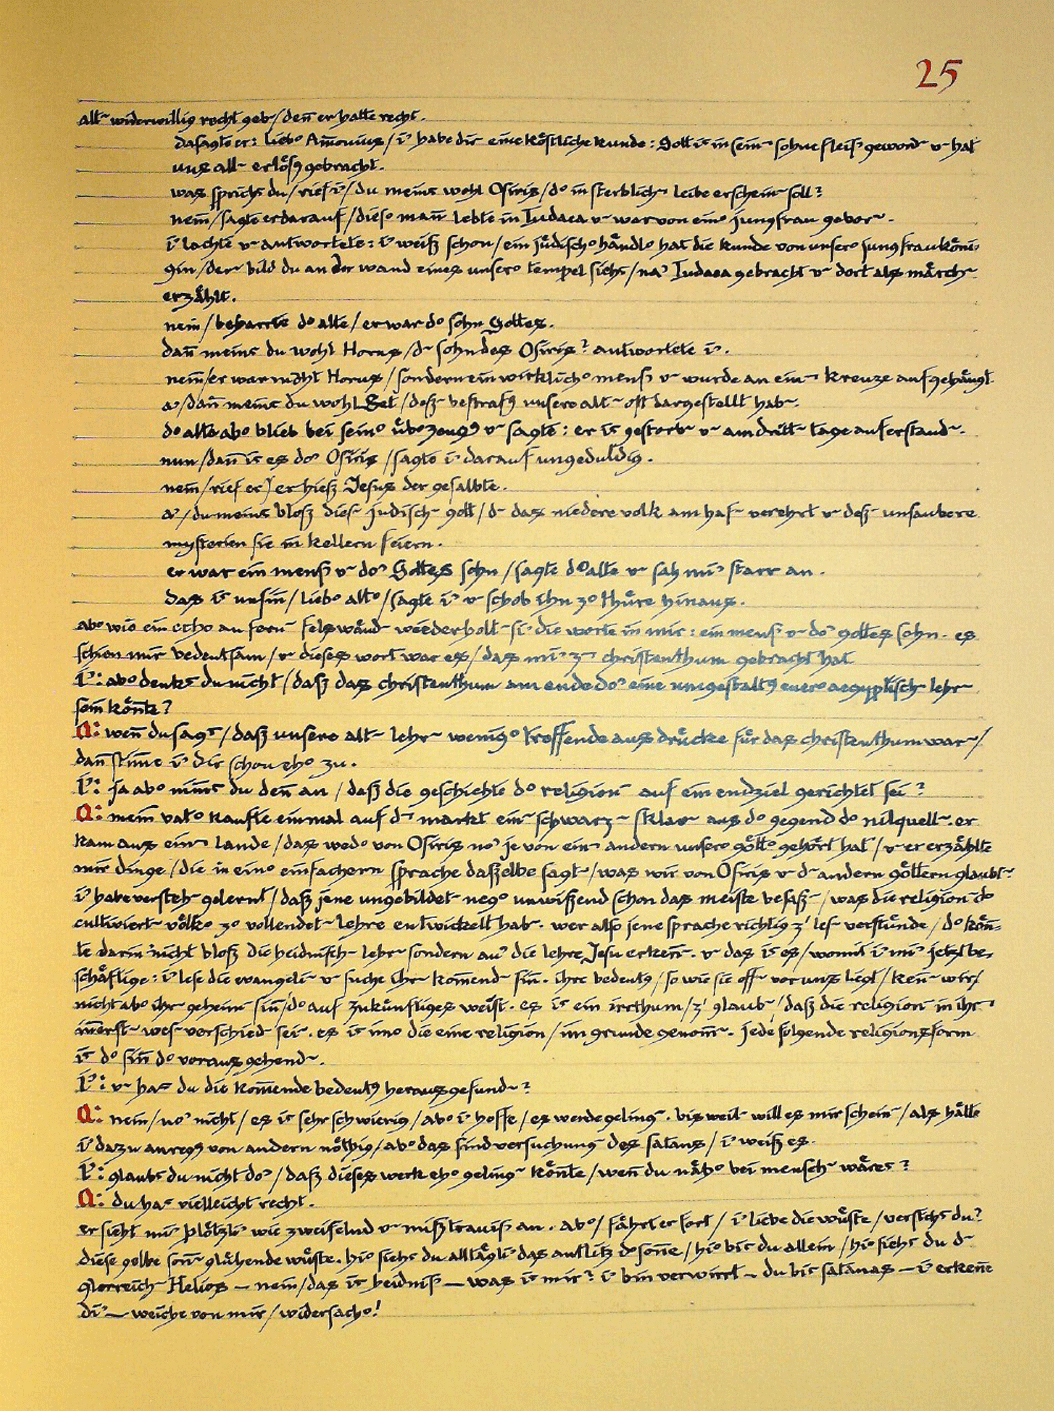 25
alt~ widerwillig recht geb/ den̄ er hatte recht.
da sagte er: lieber Am̄onius/ i᷑ habe dir eine köstliche kunde: Gott ist in sein~ sohne fleisch geword~ u hat
uns all~ erlösg gebracht.
was sprichst du/ rief i᷑/ du meinst wohl Osiris/ der in sterblich~ leibe erschein~ soll?
nein/ sagte er darauf/ dieser man̄ lebte in Iudaea u war von einer jungfrau gebor~.
i᷑ lachte u antwortete: i᷑ weiß schon/ ein jüdischer händler hat die kunde von unserer jungfraukönin-
gin/ der~ bild du an der wand eines unserer tempel siehst/ nach Iudaea gebracht u dort als märch~
erzählt.
nein/ beharrte der alte/ er war der sohn Gottes.
dan̄ meinst du wohl Horus/ d~ sohn des Osiris? antwortete i᷑.
nein/ er war nicht Horus/ sondern ein wirklicher mensch u wurde an ein~ kreuze aufgehängt.
a᷑/ dan̄ meinst du wohl Set/ deß~ bestrafg unsere alt~ oft dargestellt hab~.
der alte aber blieb bei seiner überzeugg u sagte: er ist gestorb~ u am dritt~ tage auferstand~.
nun/ dan̄ ist es der Osiris/ sagte i᷑ darauf ungeduldig.
nein/ rief er/ er hieß Jesus der gesalbte.
a᷑/ du meinst bloß dies~ jüdisch~ gott/ d~ das niedere volk am haf~ verehrt u deß~ unsaubere
mysterien sie in kellern feiern.
er war ein mensch u der Gottes sohn/ sagte der alte u sah mi᷑ starr an.
das ist unsin̄/ lieber alter/ sagte i᷑ u schob ihn zur thüre hinaus.
aber wie ein echo an fern~ felswänd~ wiederholt~ si᷑ die worte in mir: ein mensch u der gottes sohn. es
schien mir bedeutsam/ u dieses wort war es/ das mi᷑ z~ christenthum gebracht hat.
I᷑: aber denkst du nicht/ daß das christenthum am ende der eine umgestaltg euerer aegyptisch~ lehr~
sein kön̄te?
A: wen̄ du sagst/ daß unsere alt~ lehr~ weniger treffende ausdrücke für das christenthum war~/
dan̄ stim̄e i᷑ dir schon eher zu.
I᷑: ja aber nim̄st du den̄ an/ daß die geschichte der religion~ auf ein endziel gerichtet sei?
A: mein vater kaufte einmal auf d~ markt ein~ schwarz~ sklav~ aus der gegend der nilquell~. er
kam aus ein~ lande/ das weder von Osiris no᷑ je von ein~ andern unserer götter gehört hat/ u er erzählte
mir dinge/ die in einer einfachern sprache dasselbe sagt~/ was wir von Osiris u d~ andern göttern glaubt~.
i᷑ habe versteh~ gelernt/ daß jene ungebildet~ neger unwißend schon das meiste besaß~/ was die religion~ der
cultiviert~ völker zur vollendet~ lehre entwickelt hab~. wer also jene sprache richtig z᷑ les~ verstünde/ der kön̄-
te darin nicht bloß die heidnisch~ lehr~ sondern au᷑ die lehre Jesu erken̄~. u das ist es/ womit i᷑ mi᷑ jetzt be-
schäftige: i᷑ lese die evangeli~ u suche ihr~ kom̄end~ sin̄. ihre bedeutg/ so wie sie off~ vor uns liegt/ ken̄~ wir/
nicht aber ihr~ geheim~ sin̄/ der auf zukünftiges weist. es ist ein irrthum/ z᷑ glaub~/ daß die religion~ in ihr~
in̄erst~ wes~ verschied~ sei~. es ist im̄er die eine religion/ im grunde genom̄~. jede folgende religionsform
ist der sin̄ der vorausgehend~.
I᷑: u hast du die kom̄ende bedeutg herausgefund~?
A: nein/ no᷑ nicht/ es ist sehr schwierig/ aber i᷑ hoffe/ es werde geling~. bisweil~ will es mir schein~/ als hätte
i᷑ dazu anregg von andern nöthig/ aber das sind versuchung~ des satans/ i᷑ weiß es.
I᷑: glaubst du nicht der/ daß dieses werk eher geling~ kön̄te/ wen̄ du näher bei mensch~ wärest?
A: du hast vielleicht recht.
er sieht mi᷑ plötzli᷑ wie zweifelnd u mißtrauisch an. aber/ fährt er fort/ i᷑ liebe die wüste/ verstehst du?
diese gelbe son̄~glühende wüste. hier siehst du alltägli᷑ das antlitz der son̄e/ hier bist du allein/ hier siehst du d~
glorreich~ Helios — nein/ das ist heidnisch — was ist mir? i᷑ bin verwirrt — du bist satanas — i᷑ erken̄e
di᷑ — weiche von mir/ widersacher!